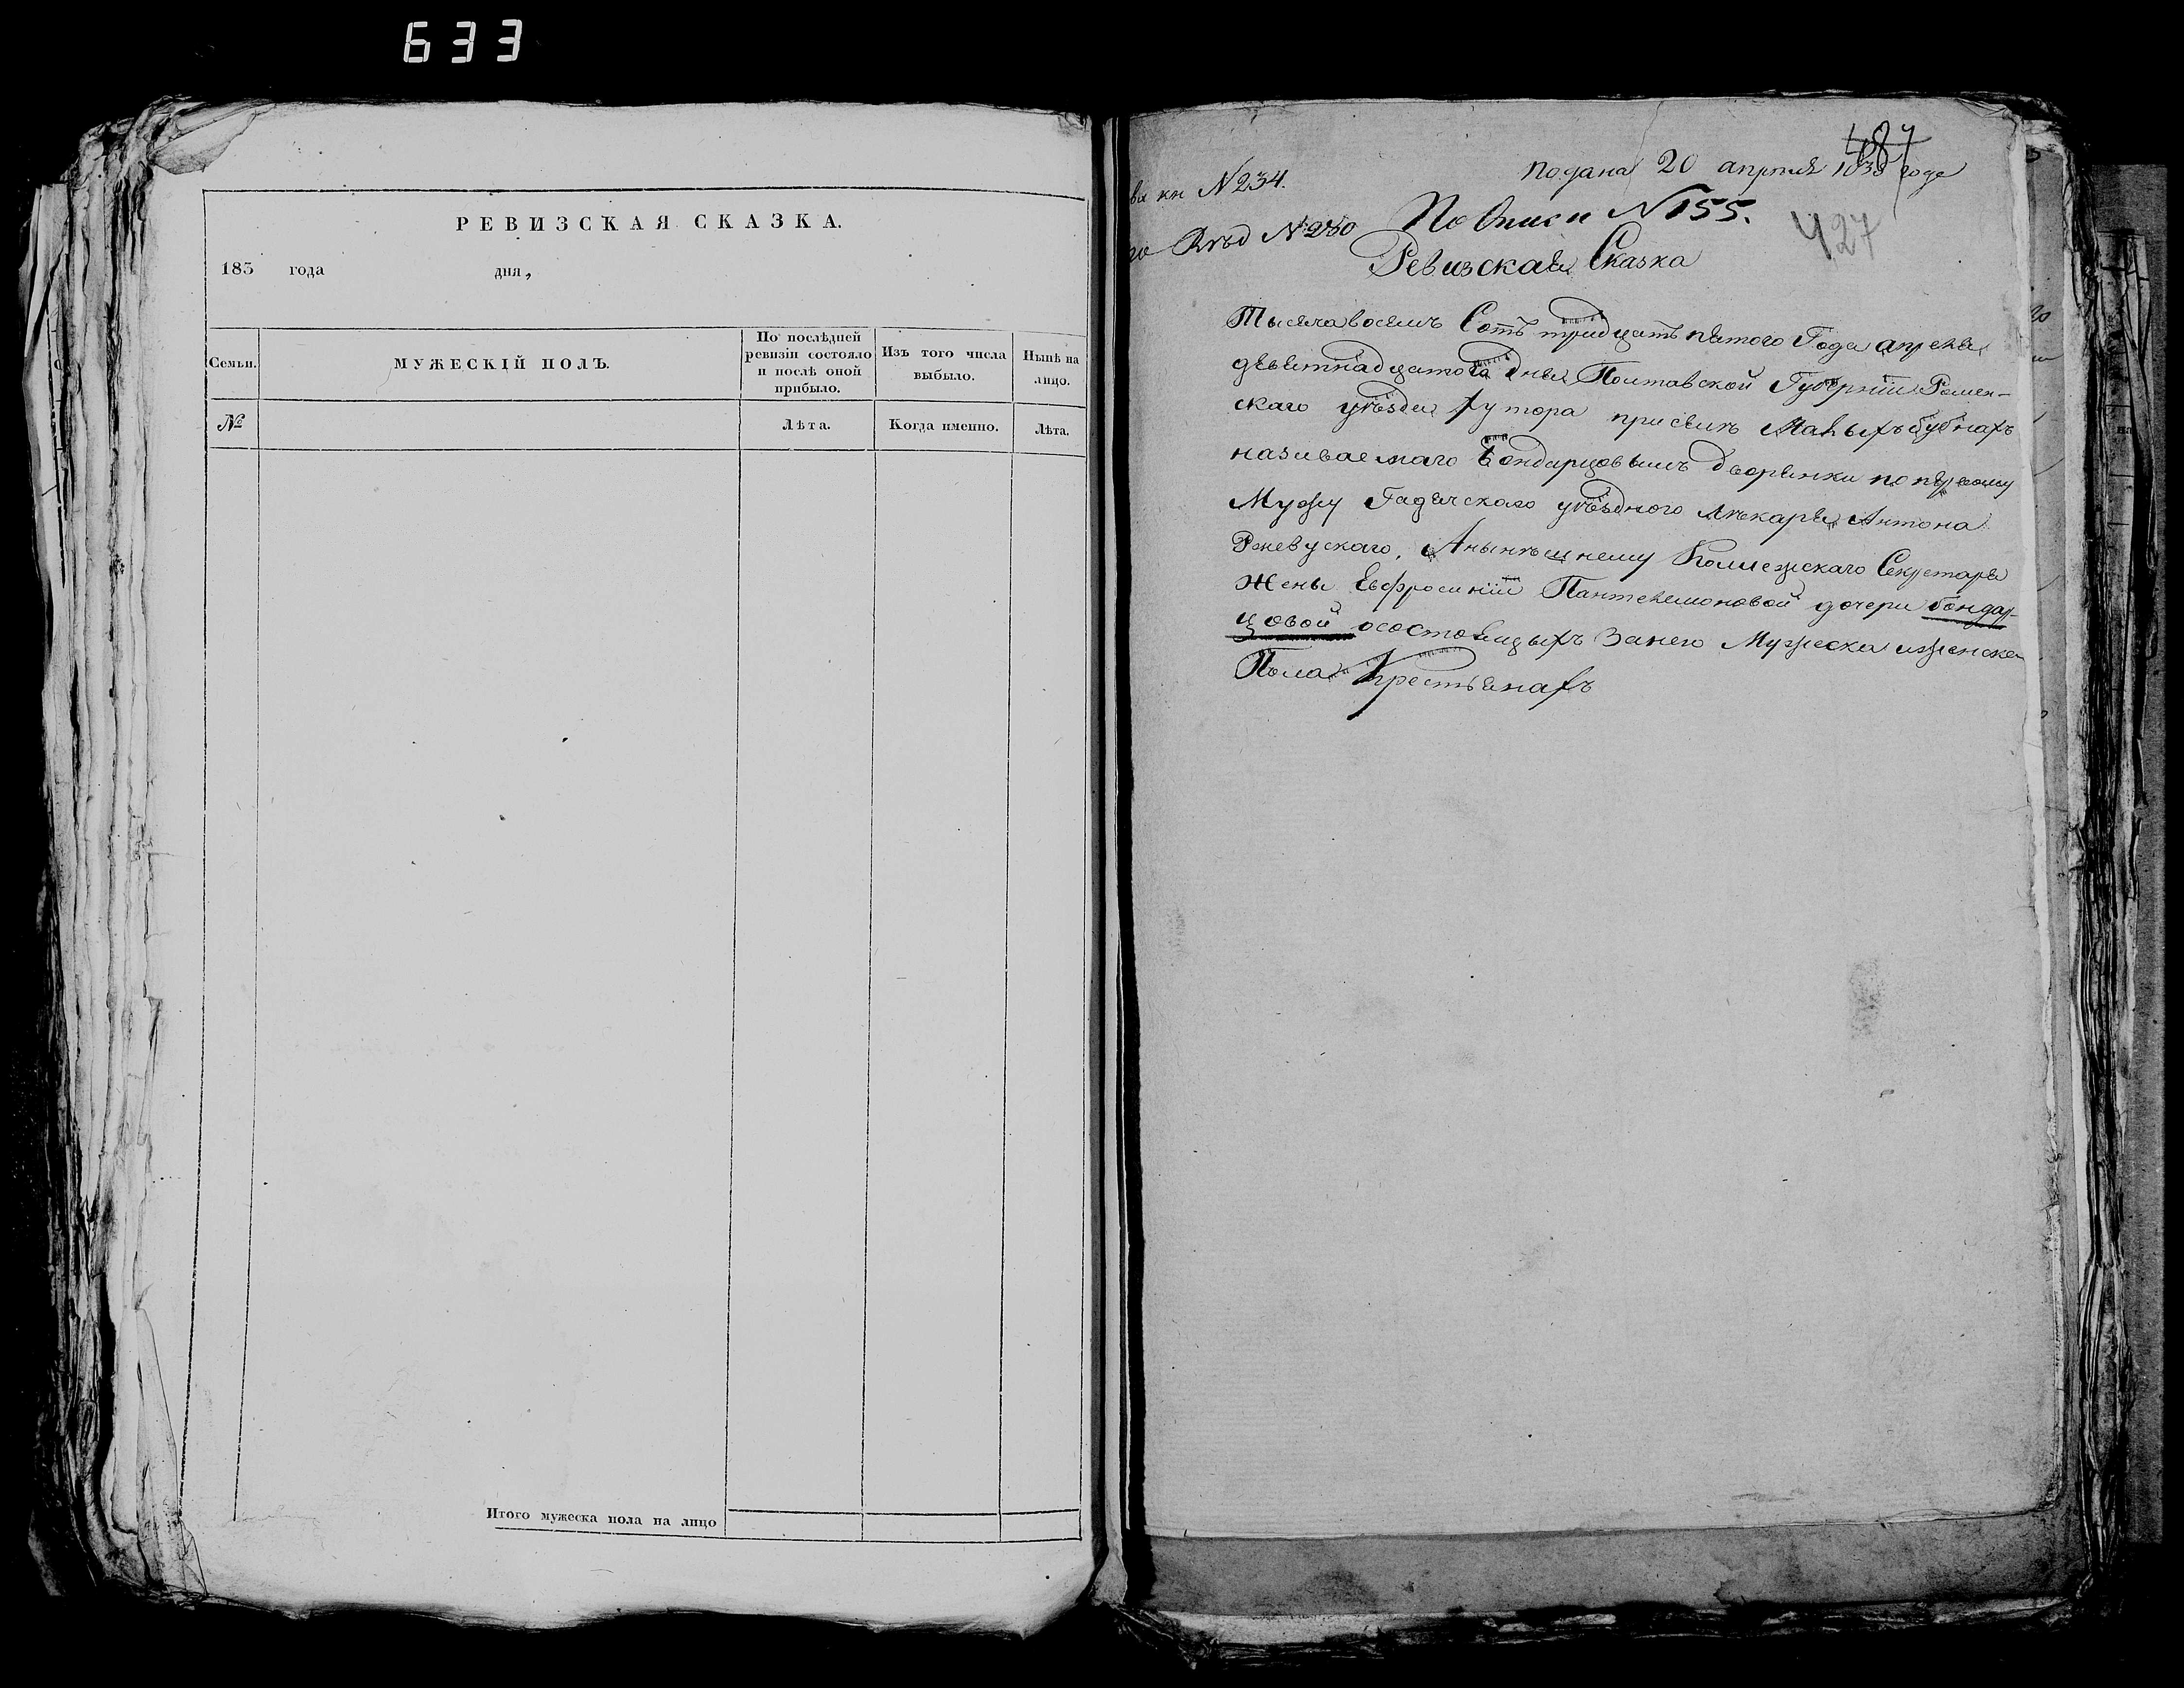 633
РЕВИЗСКАЯ СКАЗКА.
183 года дня,
Семьи.
МУЖЕСКІЙ ПОЛЪ.
По послѣдней ревизіи состояло и послѣ оной прибыло.
Изъ того числа выбыло.
Нынѣ на лицо.
№
Лѣта.
Когда именно.
Лѣта.
Итого мужеска пола на лицо
487
подана 20 апреля 183 года
кн N 234.
N 280
По описи N 155.
427
Ревизская Сказка
Тысяча восемъ Сотъ тридцать пятого Года апреля
девятнадцатого дня Полтавской Губерніи Ромен-
скаго уѣзда хутора при селѣ
називаемаго Бондарцовымъ дворянки по первому
Мужу Гадячскаго уѣздного лѣкаря Антона
Ржевускаго, Анынѣшнему Колежскаго Секретаря
жены Евфросиніи Пантелемоновой дочери бондар-
цовой осостоящыхъ Занего Мужеска иженска
Пола Крестьянахъ